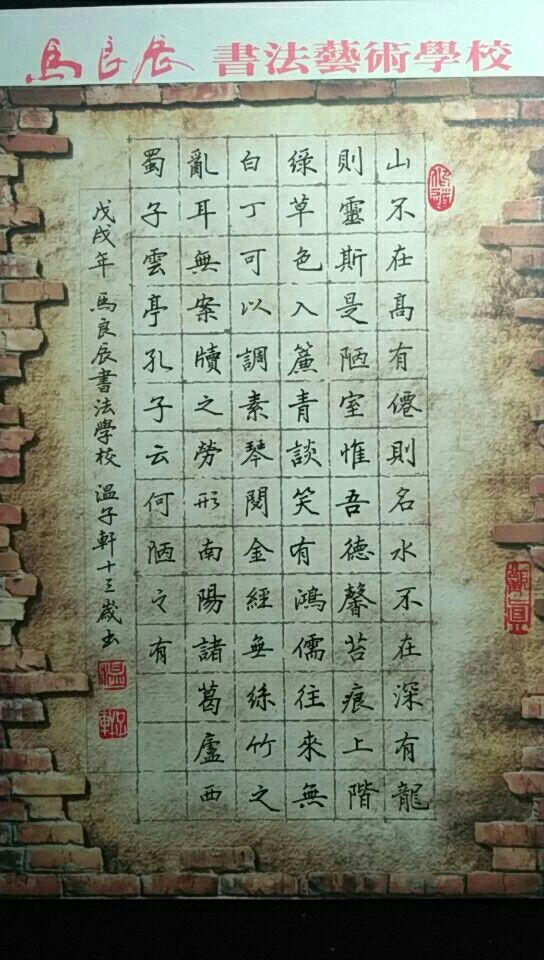 馬良辰 書法藝術學校
山不在高有僊則名水不在深有龍
則靈斯是陋室惟吾德馨苔痕上階
綠草色入簾青談笑有鴻儒往來無
白丁可以調素琴閱金經無絲竹之
亂耳無案牘之勞形南陽諸葛廬西
蜀子雲亭孔子云何陋之有
戊戌年 馬良辰書法學校 温子軒十三歲书